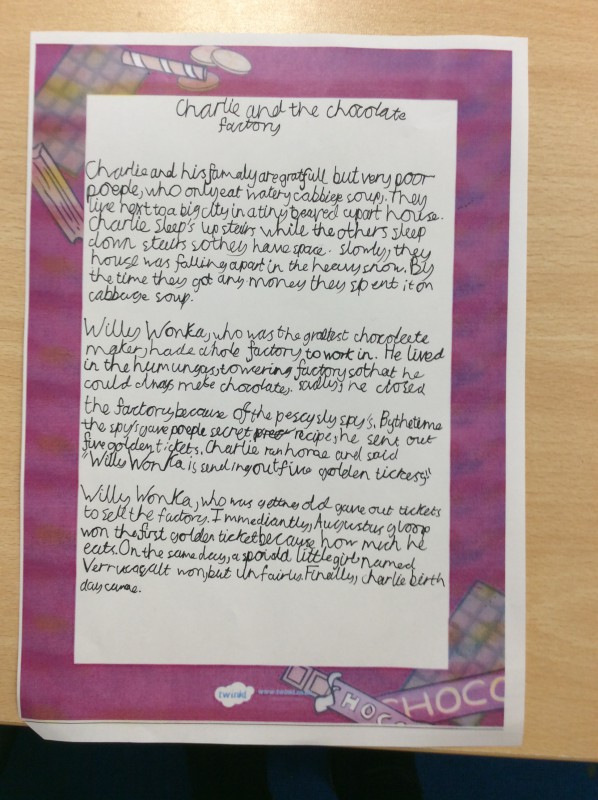 Charlie and the chocolate
factory
Charlie and his famaly are gratfull but very poor
poeple, who only eat watery cabbiege soup. They
live next to a big city in a tiny teared apart house.
Charlie sleep's upstairs while the others sleep
down stairs so they have space. slowly, they
house was falling apart in the heavy snow. By
the time they got any money they spent it on
cabbage soup.
Willy Wonka, who was the gratest chocoleete
maker, had a whole factory to work in. He lived
in the humungas, towering factory so that he
could always make chocolate. Sadly, he closed
the factory because of the pescysly spy's. By the teme
the spy's gave poeple secret recipe, he sent out
five golden tickets. Charlie ran home and said
"Willy Wonka is sending out five golden tickets"
Willy Wonka, who was getting old gave out tickets
to sell the factory. Immediantly, Augustus gloop
won the first golden ticket because how much he
eats. On the same day, a spoield little girl named
Verruca salt won, but unfairly. Finally, charlie birth
day came.
twinkl www.twinkl.co.uk
CHOCO
CHOC